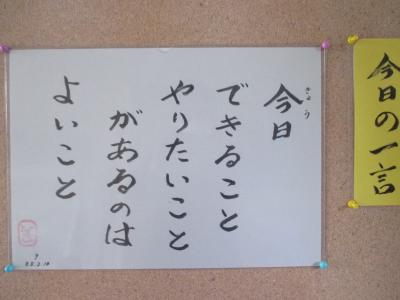 今日の一言
今日
きょう
できること
やりたいこと
があるのは
よいこと